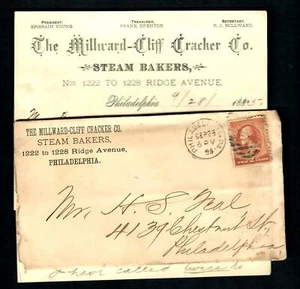 PRESIDENT, TREASURER, SECRETARY,
EPHRAIM YOUNG. FRANK BRENTON. R. J. MILLWARD.
The Millward-Cliff Cracker Co.
STEAM BAKERS,
Nos 1222 TO 1228 RIDGE AVENUE,
Philadelphia 9/28
THE MILLWARD-CLIFF CRACKER CO.
STEAM BAKERS,
1222 to 1228 Ridge Avenue,
PHILADELPHIA.
SEP 28
Mr. H. S.
4139 Chestnut St.
Philadelphia
I have called